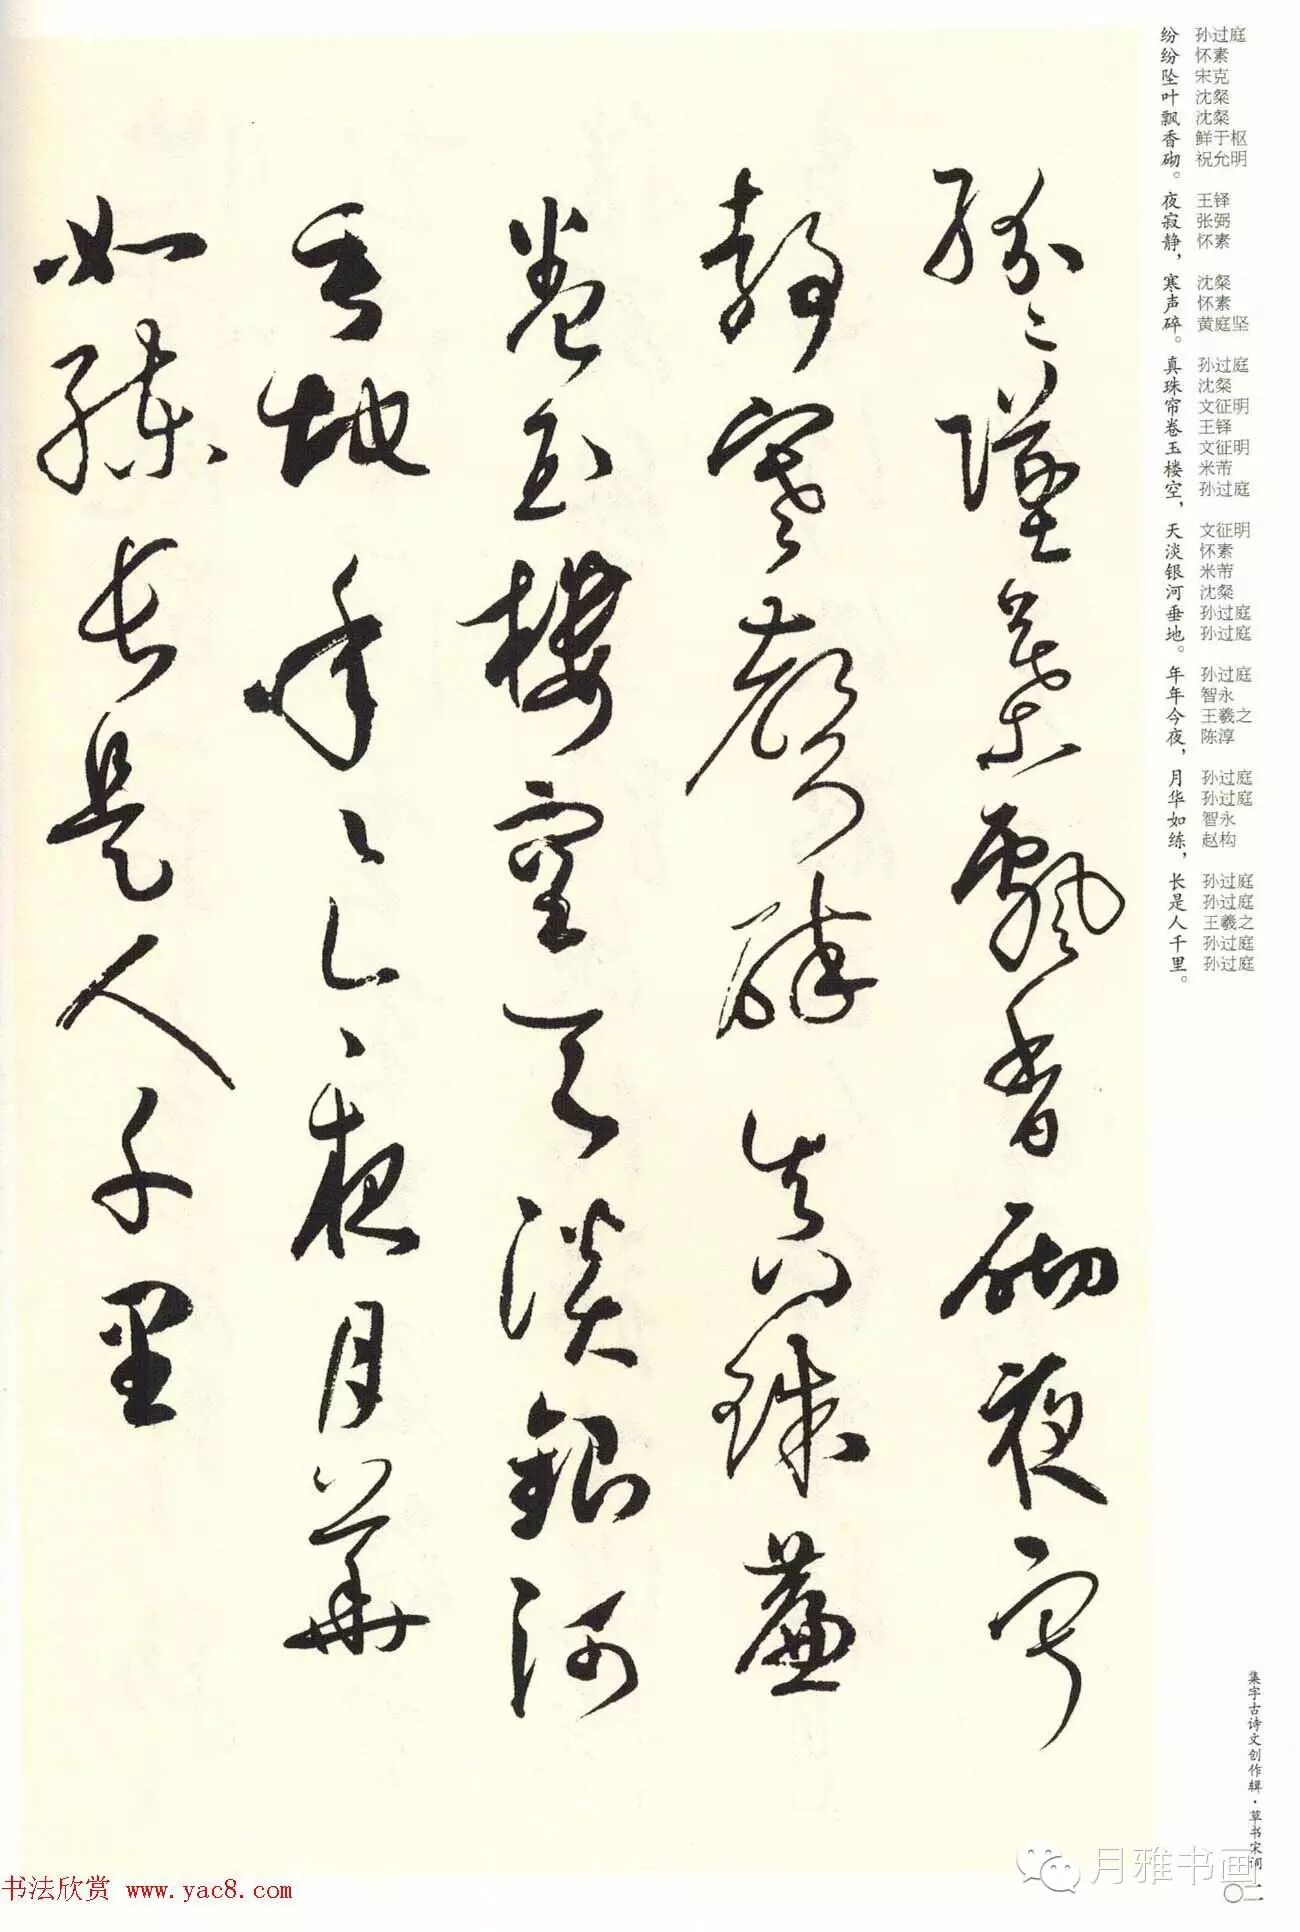 纷 孙过庭
纷 怀素
坠 宋克
叶 沈粲
飘 沈粲
香 鲜于枢
砌。 祝允明
夜 王铎
寂 张弼
静, 怀素
寒 沈粲
声 怀素
碎。 黄庭坚
真 孙过庭
珠 沈粲
帘 文征明
卷 王铎
玉 文征明
楼 米芾
空, 孙过庭
天 文征明
淡 怀素
银 米芾
河 沈粲
垂 孙过庭
地。 孙过庭
年 孙过庭
年 智永
今 王羲之
夜, 陈淳
月 孙过庭
华 孙过庭
如 智永
练, 赵构
长 孙过庭
是 孙过庭
人 王羲之
千 孙过庭
里。 孙过庭
紛〻墜葉飄香砌夜寂
靜寒聲碎真珠簾
卷玉樓空天淡銀河
垂地年〻今夜月華
如練長是人千里
集字古诗文创作辑·草书宋词
〇二
月雅书画
书法欣赏 www.yac8.com